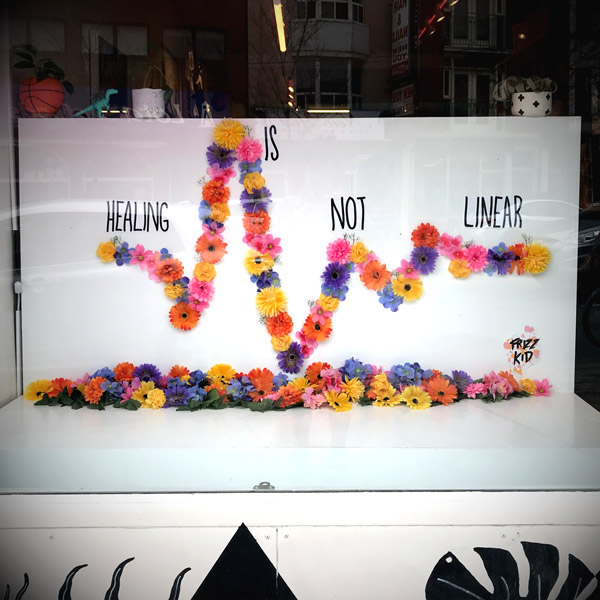 HEALING IS NOT LINEAR
FRIZZ
KID